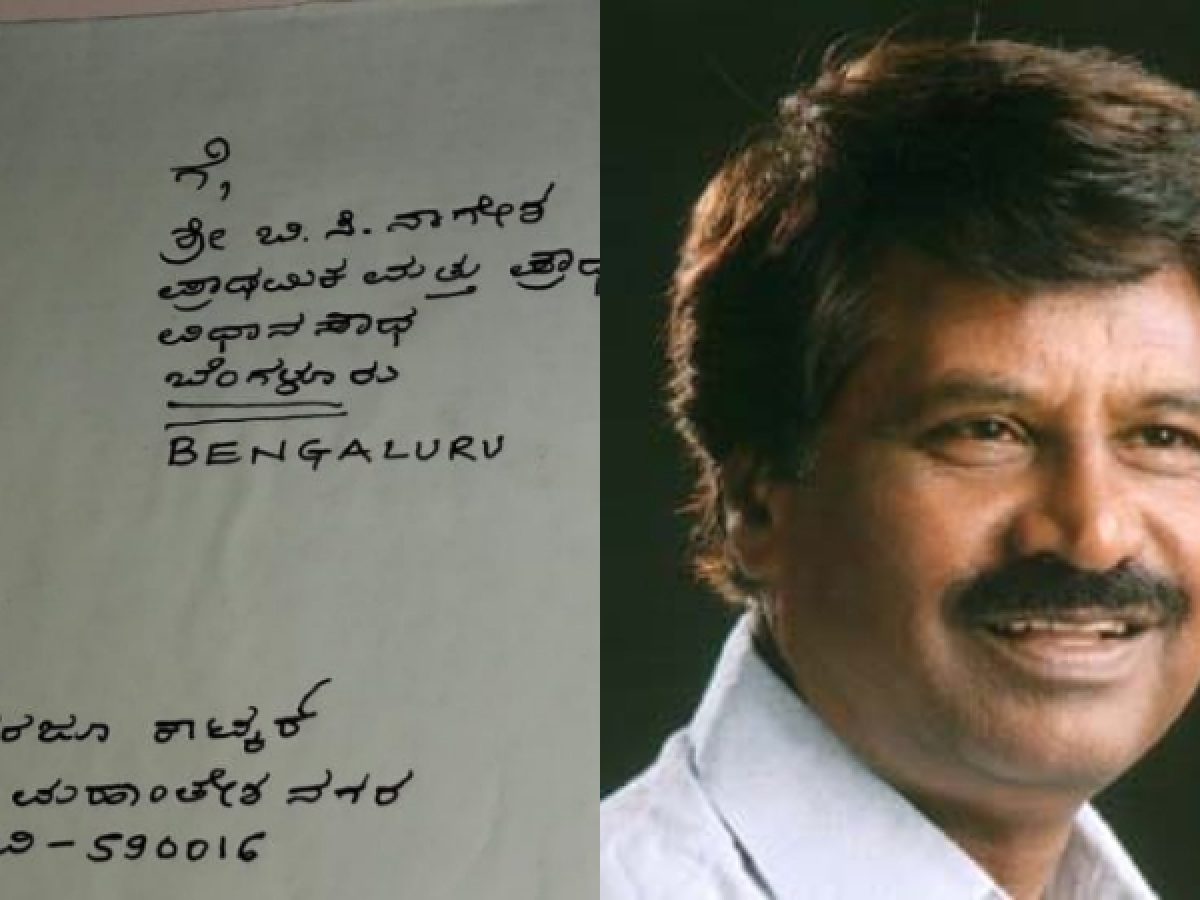 ಗೆ,
ಶ್ರೀ ಬಿ. ಸಿ. ನಾಗೇಶ
ಪ್ರಾಥಮಿಕ ಮತ್ತು ಪ್ರಾಥ
ವಿಧಾನ ಸೌಧ
ಬೆಂಗಳೂರು
BENGALURU
ರಜೂ ಕಾಟ್ಕರ್
ಮಹಾಂತೇಶ ನಗರ
ವಿ - 590016